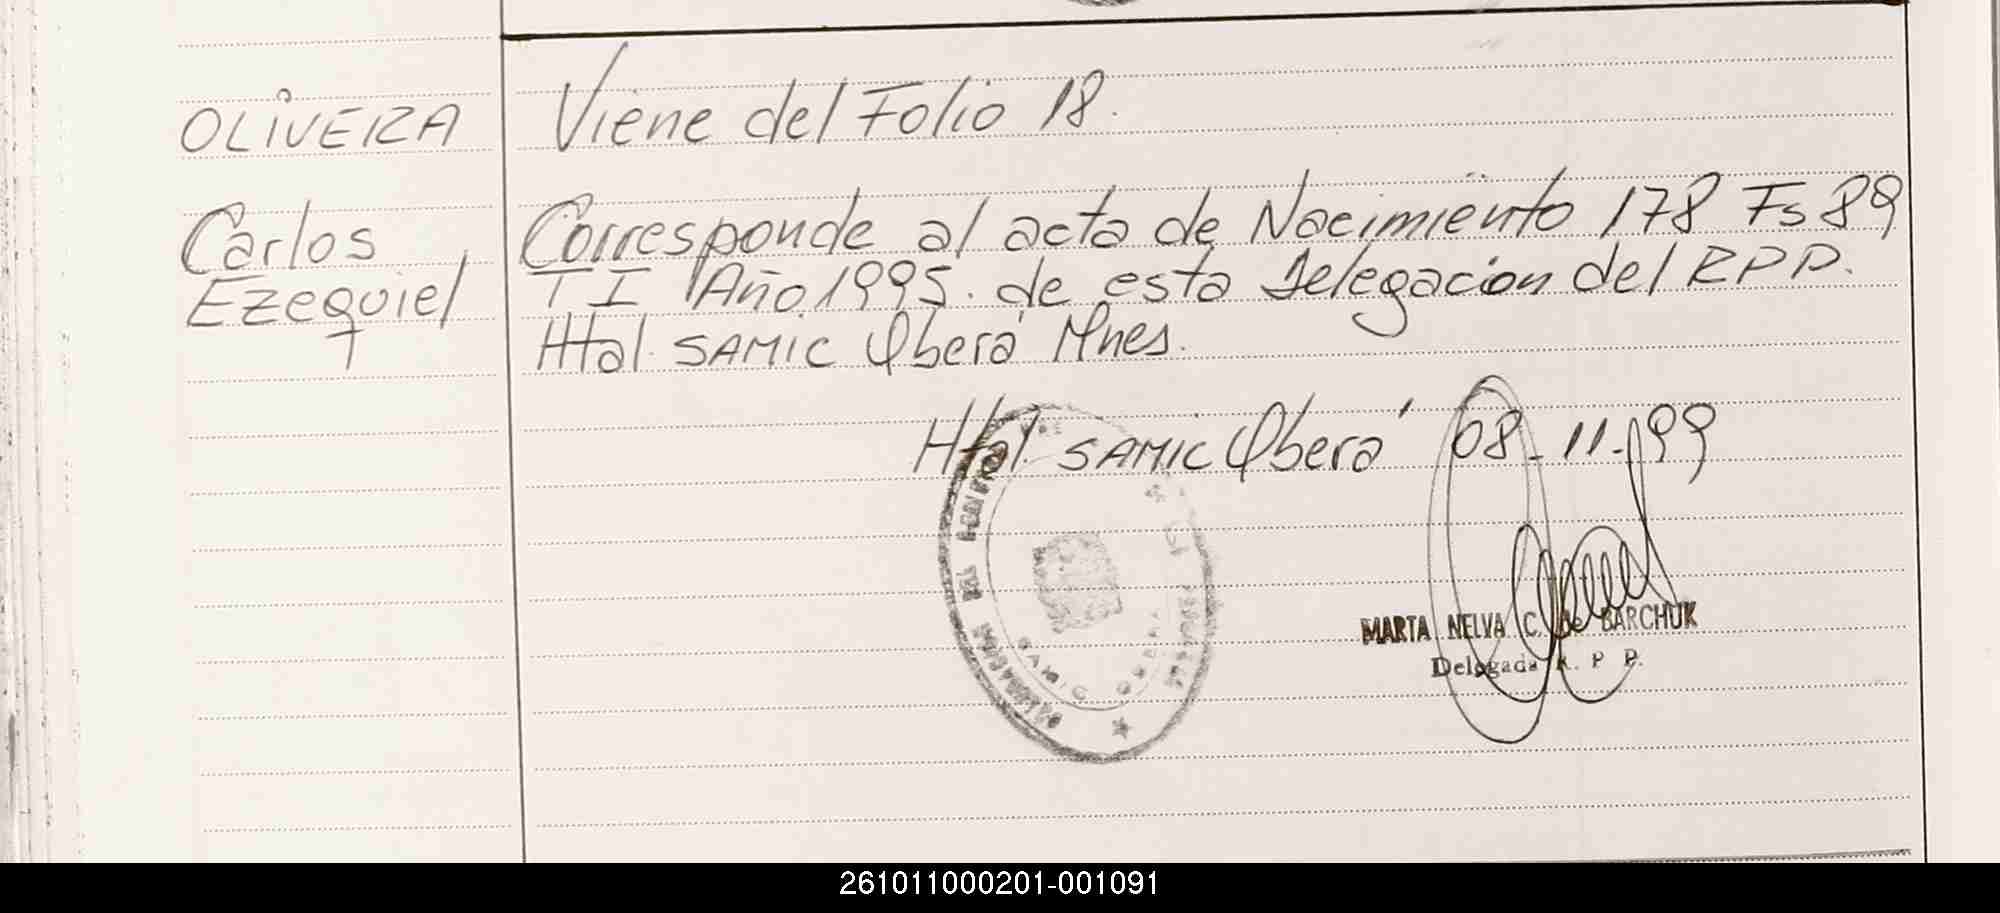 OLIVERA
Viene del Folio 18.
Carlos
Ezequiel
Corresponde al acta de Nacimiento 178 Fs 89
T I Año 1995. de esta Delegación del RPP.
Htal. SAMIC Oberá Mnes.
Htal. SAMIC Oberá 08-11-99
MARTA NELVA C. de BARCHUK
Delegada R. P P.
SAMIC OBERA
261011000201-001091